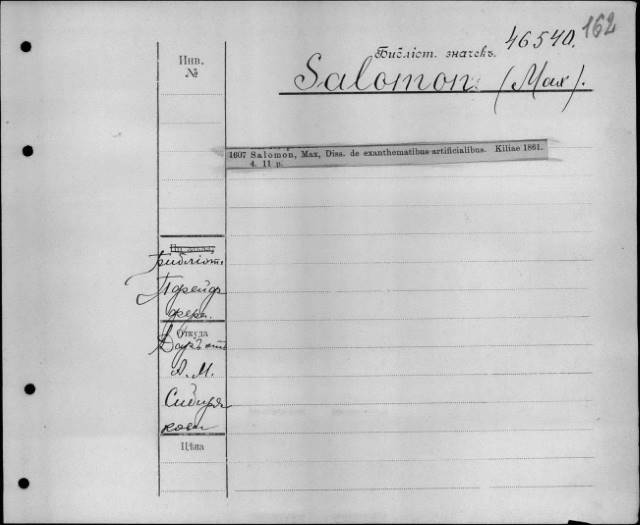 162
Библіот. значекъ. 46540.
Инв.
№
Salomon (Max).
1607 Salomon, Max, Diss. de exanthematibus artificialibus. Kiliae 1861.
4. 11 p.
Библіот.
Пфейф
фера.
Откуда
Даръ отъ
А. М.
Сибиря
кова
Цѣна